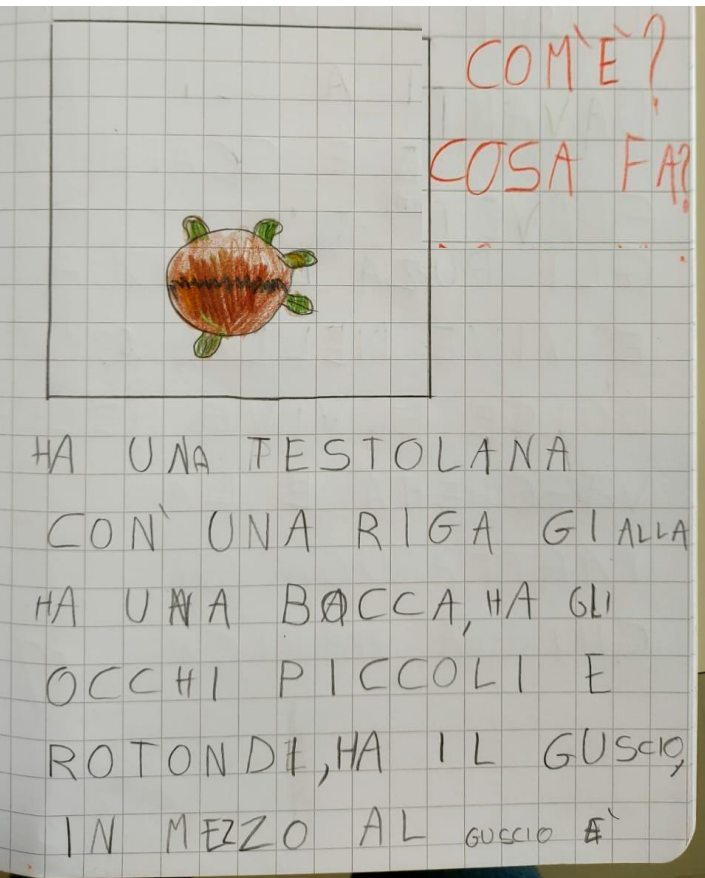 COM'È?
COSA FA?
HA UNA TESTOLANA
CON' UNA RIGA GIALLA
HA UNA BOCCA, HA GLI
OCCHI PICCOLI E
ROTONDI, HA IL GUSCIO,
IN MEZZO AL GUSCIO È